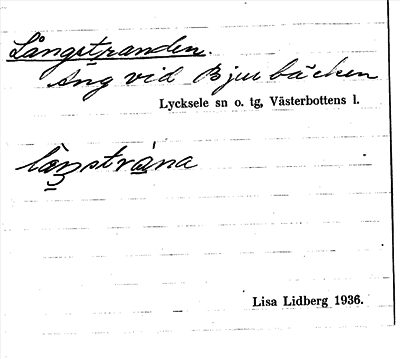 Långstranden.
Äng vid Bjurbäcken
Lycksele sn o. tg, Västerbottens l.
låŋstrána
Lisa Lidberg 1936.